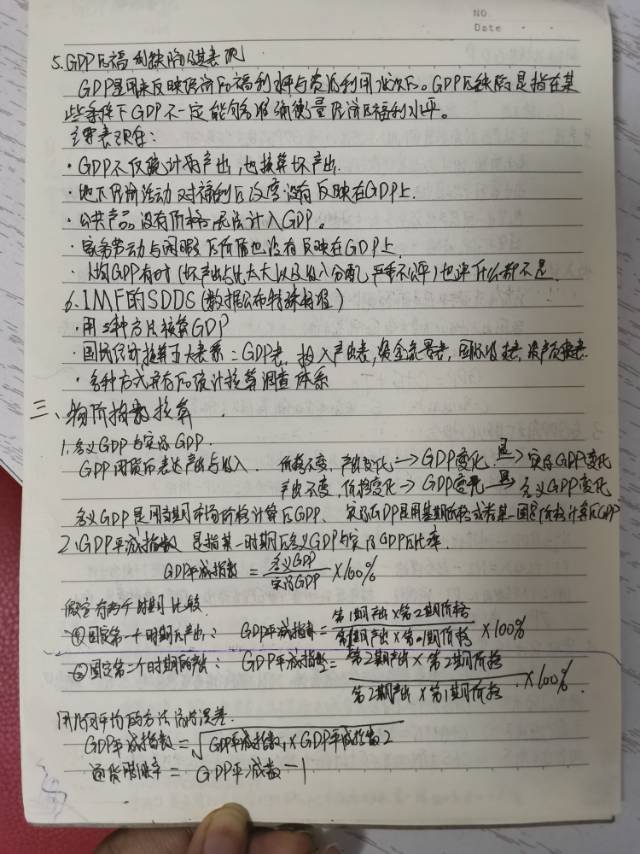 NO.
Date
5. GDP的福利缺陷及表现
GDP是用来反映经济的福利水平与资源利用状况的。GDP的缺陷是指在某
些条件下GDP不一定能够准确衡量经济的福利水平。
主要表现在:
· GDP不仅统计好产出,也核算坏产出.
· 地下经济活动对福利的改变没有反映在GDP上.
· 公共产品没有价格无法计入GDP。
· 家务劳动与闲暇的价值也没有反映在GDP上
· 人均GDP有时(坏产出占比太大以及收入分配严重不公平)也评什么都不是.
6. IMF的SDDS(数据公布特殊标准)
· 用三种方法核算GDP
· 国民经济核算五大表系:GDP表,投入产出表,资金流量表,国际收支表,资产负债表.
· 多种方式并存的统计核算调查体系
三、物价指数核算
1. 名义GDP与实际GDP.
GDP用货币表达产出与收入. 价格不变,产出变化→GDP变化 是→实际GDP变化
产出不变,价格变化→GDP变化 是→名义GDP变化
名义GDP是用当期市场价格计算的GDP、实际GDP是用基期价格或者某一固定价格计算的GDP
2. GDP平减指数 是指某一时期的名义GDP与实际GDP的比率.
GDP平减指数 = 名义GDP/实际GDP ×100%
假定有两个时期比较
①固定第一个时期的产出: GDP平减指数= 第1期产出×第2期价格/第1期产出×第1期价格 ×100%
②固定第二个时期的产出: GDP平减指数= 第2期产出×第2期价格/第2期产出×第1期价格 ×100%.
用几何平均的方法消除误差.
GDP平减指数 = √GDP平减指数1×GDP平减指数2
通货膨胀率 = GDP平减数-1